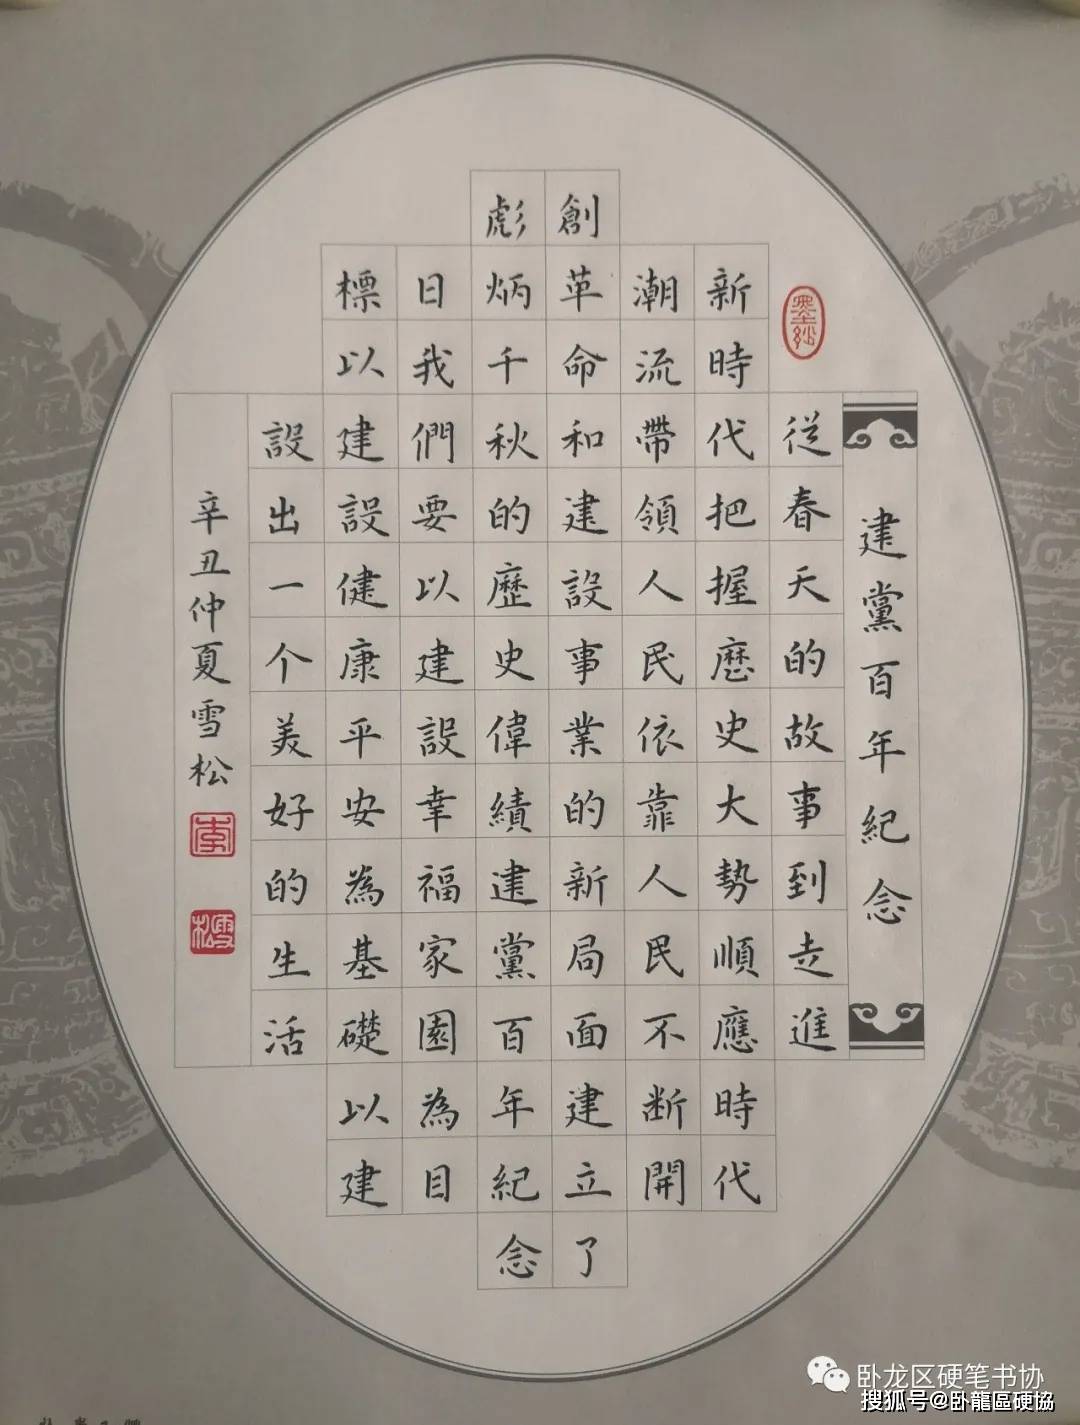 建黨百年紀念
従春天的故事到走進
新時代把握歷史大勢順應時代
潮流帶領人民依靠人民不断開
創革命和建設事業的新局面建立了
彪炳千秋的歷史偉績建黨百年紀念
日我們要以建設幸福家園為目
標以建設健康平安為基礎以建
設出一个美好的生活
辛丑仲夏雪松
李
雪松
卧龙区硬笔书协
搜狐号@卧龍區硬協